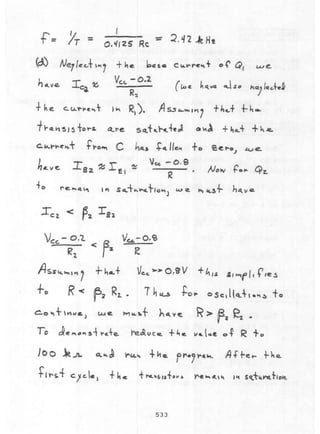 f = 1/T = 1 / 0.4125 RC = 2.42 kHz
(d) Neglecting the base current of Q1 we
have IC2 ≅ (VCC - 0.2) / R2 (we have also neglected
the current in R1). Assuming that the
transistors are saturated and that the
current from C has fallen to zero, we
have IB2 ≅ IE1 ≅ (VCC - 0.8) / R. Now for Q2
to remain in saturation, we must have
IC2 < β2 IB2
(VCC - 0.2) / R2 < β2 (VCC - 0.8) / R
Assuming that VCC >> 0.8V this simplifies
to R < β2 R2. Thus for oscillations to
continue, we must have R > β2 R2.
To demonstrate reduce the value of R to
100 kΩ and run the program. After the
first cycle, the transistors remain in saturation
533